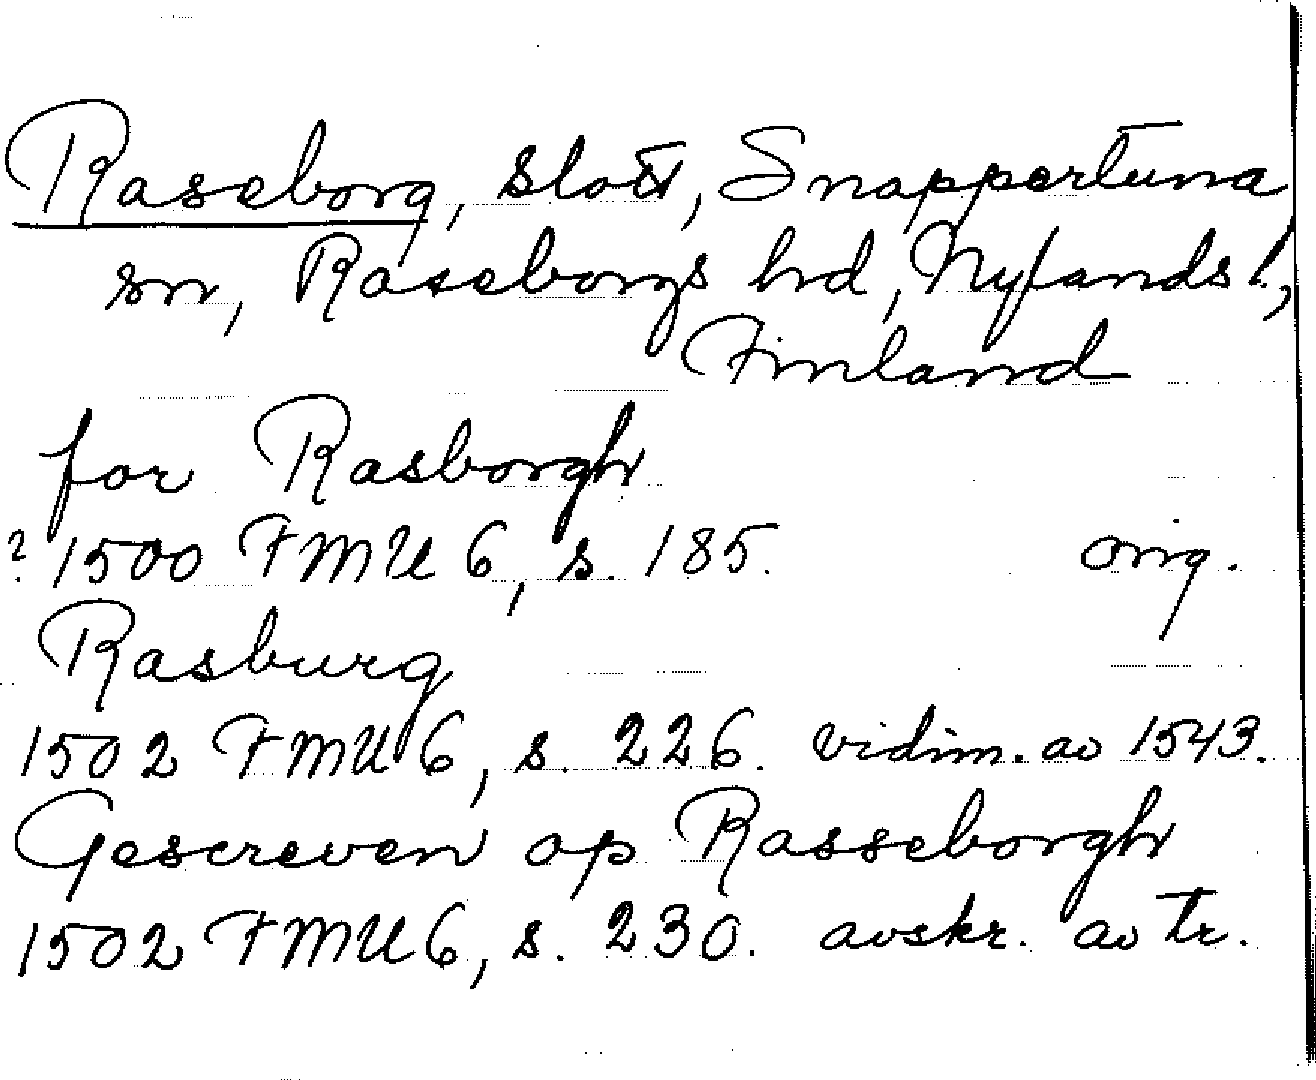 Raseborg, slott, Snappertuna
sn, Raseborgs hd, Nylands l.,
Finland
for Rasborgh
? 1500 FMU 6, s. 185. orig.
Rasburg
1502 FMU 6, s. 226. vidim. av 1543.
Gescreven op Rasseborgh
1502 FMU 6, s. 230. avskr. av tr.